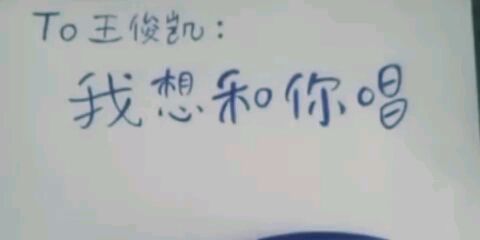 To 王俊凯:
我想和你唱